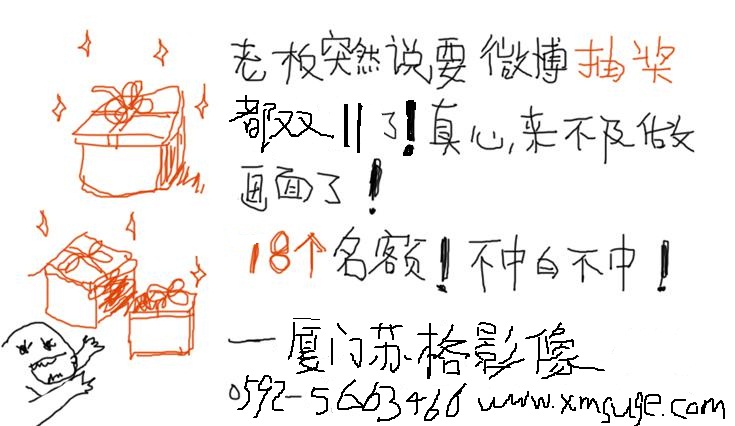 老板突然说要微博抽奖
都双11了!真心,来不及做
画面了!
18个名额!不中白不中!
一厦门苏格影像
0592-5663466 www.xmsuge.com